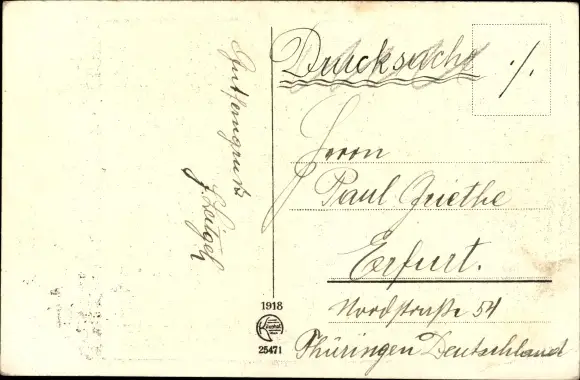 Drucksache
./.
Herrn
Paul Griethe
Erfurt.
Nordstraße 54
Thüringen Deutschland
1918
25471